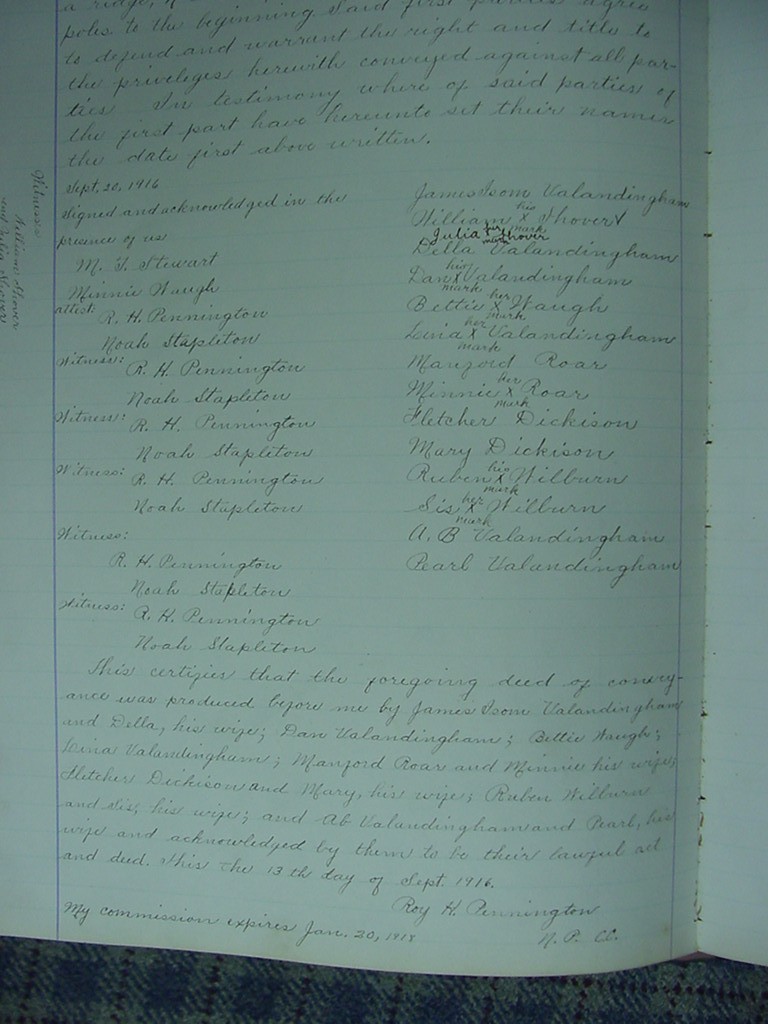 poles to the beginning Said first parties agree
to defend and warrant the right and title to
the priveleges herewith conveyed against all par-
ties In testimony where of said parties of
the first part have hereunto set their names
the date first above written.
Sept. 20, 1916
Signed and acknowledged in the
presence of us
M. F. Stewart
Minnie Waugh
attest: R. H. Pennington
Noah Stapleton
Witness: R. H. Pennington
Noah Stapleton
Witness: R. H. Pennington
Noah Stapleton
Witness: R. H. Pennington
Noah Stapleton
Witness:
R. H. Pennington
Noah Stapleton
Witness: R. H. Pennington
Noah Stapleton
James Isom Valandingham
William his X mark Shover
Julia her X mark Shover
Della Valandingham
Dan his X mark Valandingham
Bettie her X mark Waugh
Lina her X mark Valandingham
Manford Roar
Minnie her X mark Roar
Fletcher Dickison
Mary Dickison
Ruben his X mark Wilburn
Sis her X mark Wilburn
A. B Valandingham
Pearl Valandingham
Witness
William Shover
and Julia Shover
This certifies that the foregoing deed of convey-
ance was produced before me by James Isom Valandingham
and Della, his wife; Dan Valandingham; Bettie Waugh;
Lina Valandingham; Manford Roar and Minnie his wife;
Fletcher Dickison and Mary, his wife; Ruben Wilburn
and Sis, his wife; and Ab Valandingham and Pearl, his
wife and acknowledged by them to be their lawful act
and deed. This the 13th day of Sept. 1916.
Roy H. Pennington
My commission expires Jan. 20, 1918
N. P. CC.